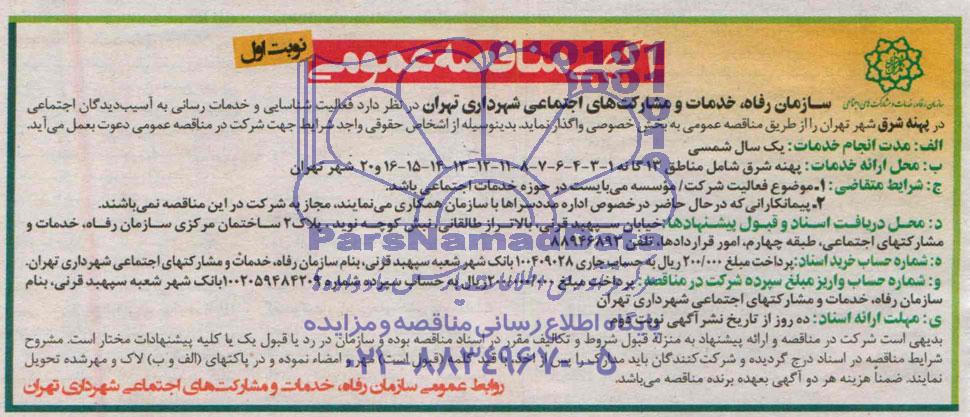 آگهی مناقصه عمومی
نوبت اول
سازمان رفاه، خدمات و مشارکت‌های اجتماعی
سازمان رفاه، خدمات و مشارکت‌های اجتماعی شهرداری تهران در نظر دارد فعالیت شناسایی و خدمات رسانی به آسیب‌دیدگان اجتماعی
در پهنه شرق شهر تهران را از طریق مناقصه عمومی به بخش خصوصی واگذار نماید. بدینوسیله از اشخاص حقوقی واجد شرایط جهت شرکت در مناقصه عمومی دعوت بعمل می‌آید.
الف: مدت انجام خدمات: یک سال شمسی
ب: محل ارائه خدمات: پهنه شرق شامل مناطق ۱۳ گانه ۱-۳-۴-۶-۷-۸-۱۱-۱۲-۱۳-۱۴-۱۵-۱۶ و ۲۰ شهر تهران
ج: شرایط متقاضی: ۱. موضوع فعالیت شرکت/ مؤسسه می‌بایست در حوزه خدمات اجتماعی باشد.
۲. پیمانکارانی که در حال حاضر در خصوص اداره مددسراها با سازمان همکاری می‌نمایند، مجاز به شرکت در این مناقصه نمی‌باشند.
د: محل دریافت اسناد و قبول پیشنهادها: خیابان سپهبد قرنی، بالاتر از طالقانی، نبش کوچه نوید، پلاک ۲ ساختمان مرکزی سازمان رفاه، خدمات و
مشارکتهای اجتماعی، طبقه چهارم، امور قراردادها، تلفن ۸۸۹۴۶۸۹۳
ه: شماره حساب خرید اسناد: پرداخت مبلغ ۲۰۰/۰۰۰ ریال به حساب جاری ۱۰۰۴۰۹۰۲۸ بانک شهر شعبه سپهبد قرنی، بنام سازمان رفاه، خدمات و مشارکتهای اجتماعی شهرداری تهران.
و: شماره حساب واریز مبلغ سپرده شرکت در مناقصه: پرداخت مبلغ ریال به حساب سپرده شماره ۱۰۰۲۰۵۹۴۸۴۲۰۹ بانک شهر شعبه سپهبد قرنی، بنام
سازمان رفاه، خدمات و مشارکتهای اجتماعی شهرداری تهران
ی: مهلت ارائه اسناد: ده روز از تاریخ نشر آگهی نوبت دوم
بدیهی است شرکت در مناقصه و ارائه پیشنهاد به منزله قبول شروط و تکالیف مقرر در اسناد مناقصه بوده و سازمان در رد یا قبول یک یا کلیه پیشنهادات مختار است. مشروح
شرایط مناقصه در اسناد درج گردیده و شرکت‌کنندگان باید مدارک را پس از قید کلمه (قبول است) مهر و امضاء نموده و در پاکتهای (الف و ب) لاک و مهر شده تحویل
نمایند. ضمناً هزینه هر دو آگهی بعهده برنده مناقصه می‌باشد.
روابط عمومی سازمان رفاه، خدمات و مشارکت‌های اجتماعی شهرداری تهران
ParsNamadData
پایگاه اطلاع رسانی مناقصه و مزایده
۰۲۱-۸۸۳۴۹۶۷۰-۵